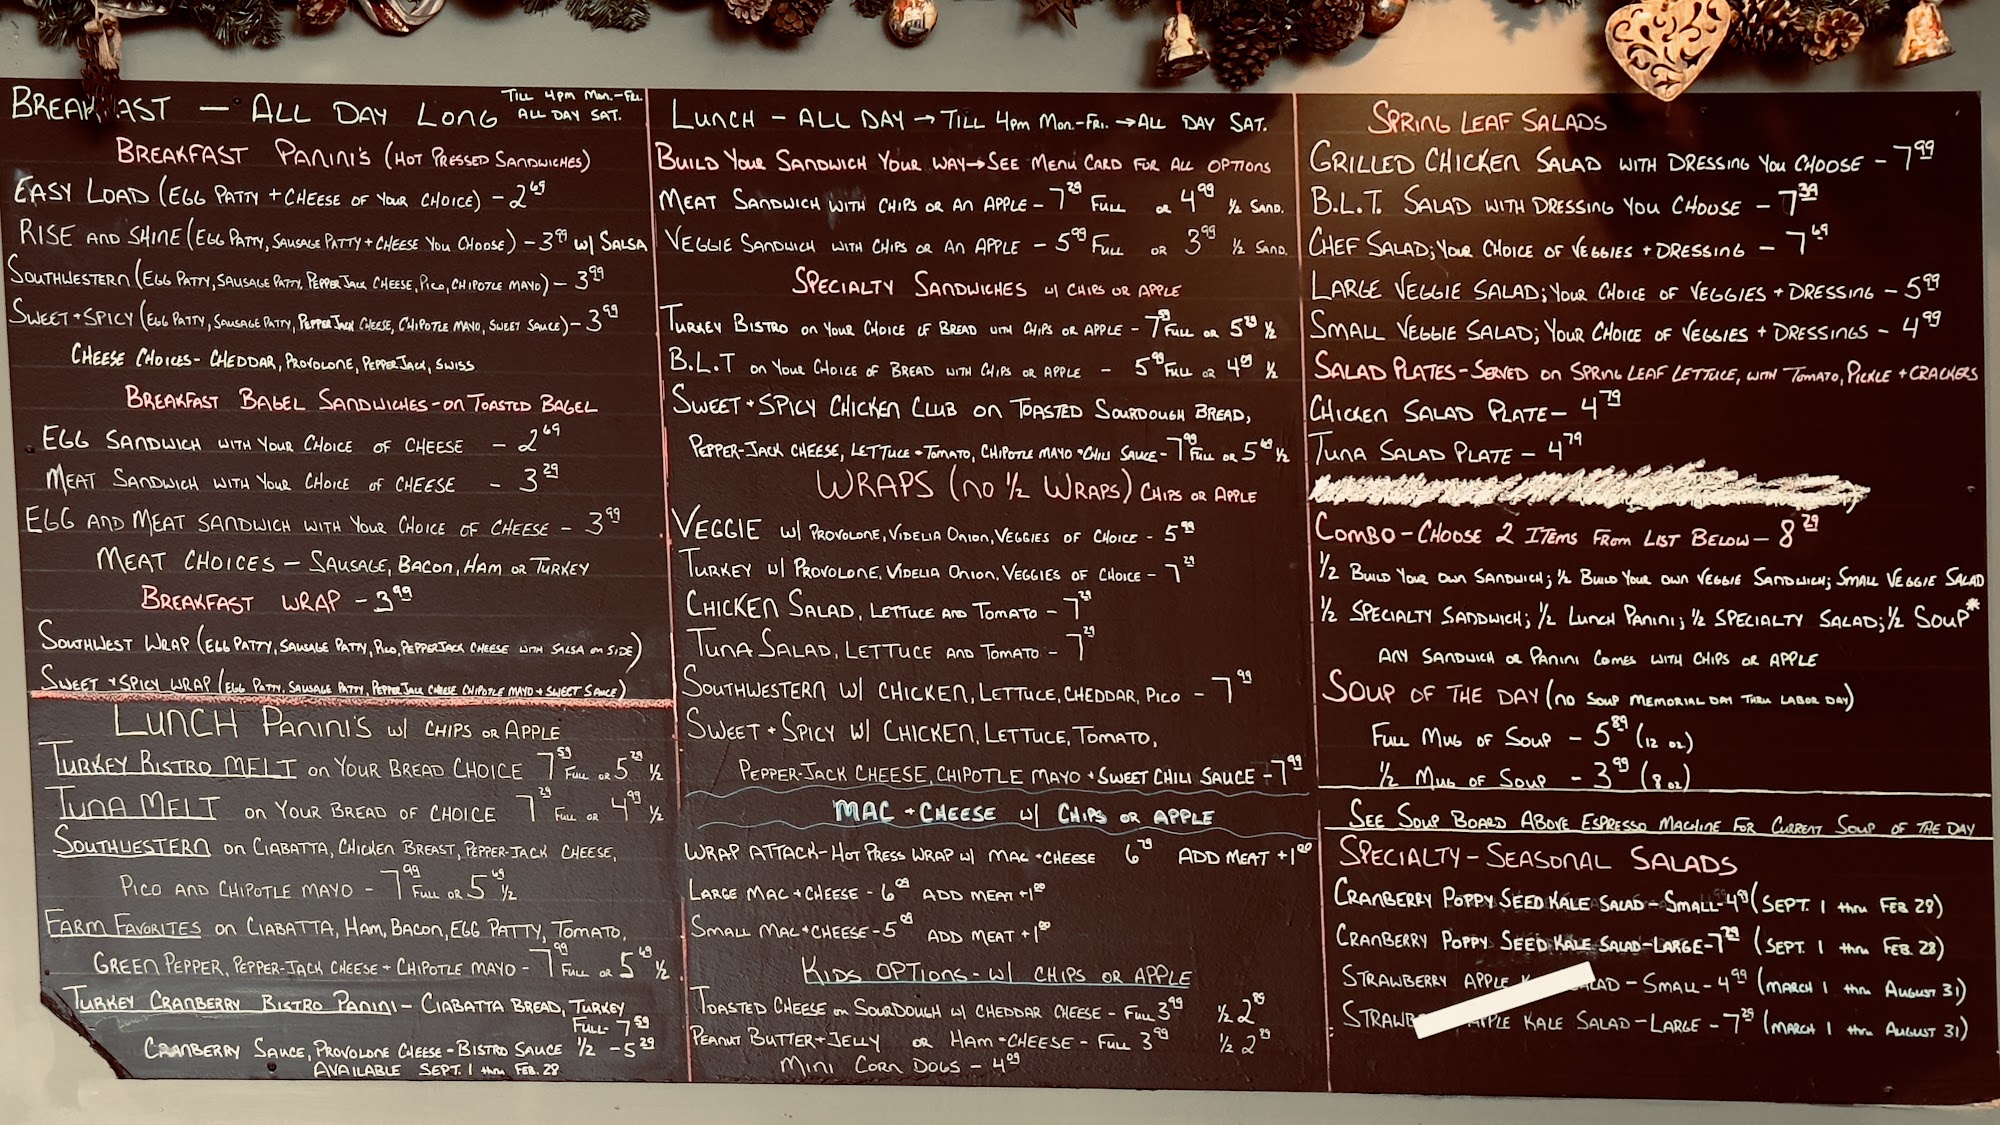 BREAKFAST — ALL DAY LONG TILL 4PM MON.-FRI. ALL DAY SAT.
BREAKFAST PANINI'S (HOT PRESSED SANDWICHES)
EASY LOAD (EGG PATTY + CHEESE OF YOUR CHOICE) - 2.69
RISE AND SHINE (EGG PATTY, SAUSAGE PATTY + CHEESE YOU CHOOSE) - 3.99 W/ SALSA
SOUTHWESTERN (EGG PATTY, SAUSAGE PATTY, PEPPER JACK CHEESE, PICO, CHIPOTLE MAYO) - 3.99
SWEET + SPICY (EGG PATTY, SAUSAGE PATTY, PEPPER JACK CHEESE, CHIPOTLE MAYO, SWEET SAUCE) - 3.99
CHEESE CHOICES - CHEDDAR, PROVOLONE, PEPPER JACK, SWISS
BREAKFAST BAGEL SANDWICHES - ON TOASTED BAGEL
EGG SANDWICH WITH YOUR CHOICE OF CHEESE - 2.69
MEAT SANDWICH WITH YOUR CHOICE OF CHEESE - 3.29
EGG AND MEAT SANDWICH WITH YOUR CHOICE OF CHEESE - 3.99
MEAT CHOICES — SAUSAGE, BACON, HAM OR TURKEY
BREAKFAST WRAP - 3.99
SOUTHWEST WRAP (EGG PATTY, SAUSAGE PATTY, PICO, PEPPERJACK CHEESE WITH SALSA ON SIDE)
SWEET + SPICY WRAP (EGG PATTY, SAUSAGE PATTY, PEPPER JACK CHEESE CHIPOTLE MAYO + SWEET SAUCE)
LUNCH PANINI'S W/ CHIPS OR APPLE
TURKEY BISTRO MELT ON YOUR BREAD CHOICE 7.59 FULL OR 5.29 1/2
TUNA MELT ON YOUR BREAD OF CHOICE 7.29 FULL OR 4.99 1/2
SOUTHWESTERN ON CIABATTA, CHICKEN BREAST, PEPPER-JACK CHEESE,
PICO AND CHIPOTLE MAYO - 7.99 FULL OR 5.69 1/2
FARM FAVORITES ON CIABATTA, HAM, BACON, EGG PATTY, TOMATO,
GREEN PEPPER, PEPPER-JACK CHEESE + CHIPOTLE MAYO - 7.99 FULL OR 5.69 1/2
TURKEY CRANBERRY BISTRO PANINI - CIABATTA BREAD, TURKEY
FULL - 7.59
CRANBERRY SAUCE, PROVOLONE CHEESE - BISTRO SAUCE 1/2 - 5.29
AVAILABLE SEPT. 1 THRU FEB. 28
LUNCH - ALL DAY → TILL 4PM MON.-FRI. → ALL DAY SAT.
BUILD YOUR SANDWICH YOUR WAY → SEE MENU CARD FOR ALL OPTIONS
MEAT SANDWICH WITH CHIPS OR AN APPLE - 7.29 FULL OR 4.99 1/2 SAND.
VEGGIE SANDWICH WITH CHIPS OR AN APPLE - 5.99 FULL OR 3.99 1/2 SAND.
SPECIALTY SANDWICHES W/ CHIPS OR APPLE
TURKEY BISTRO ON YOUR CHOICE OF BREAD WITH CHIPS OR APPLE - 7.59 FULL OR 5.29 1/2
B.L.T ON YOUR CHOICE OF BREAD WITH CHIPS OR APPLE - 5.99 FULL OR 4.09 1/2
SWEET + SPICY CHICKEN CLUB ON TOASTED SOURDOUGH BREAD,
PEPPER-JACK CHEESE, LETTUCE + TOMATO, CHIPOTLE MAYO + CHILI SAUCE - 7.99 FULL OR 5.69 1/2
WRAPS (NO 1/2 WRAPS) CHIPS OR APPLE
VEGGIE W/ PROVOLONE, VIDELIA ONION, VEGGIES OF CHOICE - 5.99
TURKEY W/ PROVOLONE, VIDELIA ONION, VEGGIES OF CHOICE - 7.29
CHICKEN SALAD, LETTUCE AND TOMATO - 7.29
TUNA SALAD, LETTUCE AND TOMATO - 7.29
SOUTHWESTERN W/ CHICKEN, LETTUCE, CHEDDAR, PICO - 7.99
SWEET + SPICY W/ CHICKEN, LETTUCE, TOMATO,
PEPPER-JACK CHEESE, CHIPOTLE MAYO + SWEET CHILI SAUCE - 7.99
MAC + CHEESE W/ CHIPS OR APPLE
WRAP ATTACK - HOT PRESS WRAP W/ MAC + CHEESE 6.79 ADD MEAT +1.00
LARGE MAC + CHEESE - 6.09 ADD MEAT +1.00
SMALL MAC + CHEESE - 5.09 ADD MEAT +1.00
KIDS OPTIONS - W/ CHIPS OR APPLE
TOASTED CHEESE ON SOURDOUGH W/ CHEDDAR CHEESE - FULL 3.99 1/2 2.89
PEANUT BUTTER + JELLY OR HAM + CHEESE - FULL 3.99 1/2 2.29
MINI CORN DOGS - 4.09
SPRING LEAF SALADS
GRILLED CHICKEN SALAD WITH DRESSING YOU CHOOSE - 7.99
B.L.T. SALAD WITH DRESSING YOU CHOOSE - 7.39
CHEF SALAD; YOUR CHOICE OF VEGGIES + DRESSING - 7.69
LARGE VEGGIE SALAD; YOUR CHOICE OF VEGGIES + DRESSING - 5.99
SMALL VEGGIE SALAD; YOUR CHOICE OF VEGGIES + DRESSINGS - 4.99
SALAD PLATES - SERVED ON SPRING LEAF LETTUCE, WITH TOMATO, PICKLE + CRACKERS
CHICKEN SALAD PLATE - 4.79
TUNA SALAD PLATE - 4.79
COMBO - CHOOSE 2 ITEMS FROM LIST BELOW - 8.29
1/2 BUILD YOUR OWN SANDWICH; 1/2 BUILD YOUR OWN VEGGIE SANDWICH; SMALL VEGGIE SALAD
1/2 SPECIALTY SANDWICH; 1/2 LUNCH PANINI; 1/2 SPECIALTY SALAD; 1/2 SOUP*
ANY SANDWICH OR PANINI COMES WITH CHIPS OR APPLE
SOUP OF THE DAY (NO SOUP MEMORIAL DAY THRU LABOR DAY)
FULL MUG OF SOUP - 5.89 (12 OZ)
1/2 MUG OF SOUP - 3.99 (8 OZ)
SEE SOUP BOARD ABOVE ESPRESSO MACHINE FOR CURRENT SOUP OF THE DAY
SPECIALTY - SEASONAL SALADS
CRANBERRY POPPY SEED KALE SALAD - SMALL - 4.99 (SEPT. 1 THRU FEB 28)
CRANBERRY POPPY SEED KALE SALAD - LARGE - 7.29 (SEPT. 1 THRU FEB. 28)
STRAWBERRY APPLE SALAD - SMALL - 4.99 (MARCH 1 THRU AUGUST 31)
APPLE KALE SALAD - LARGE - 7.29 (MARCH 1 THRU AUGUST 31)